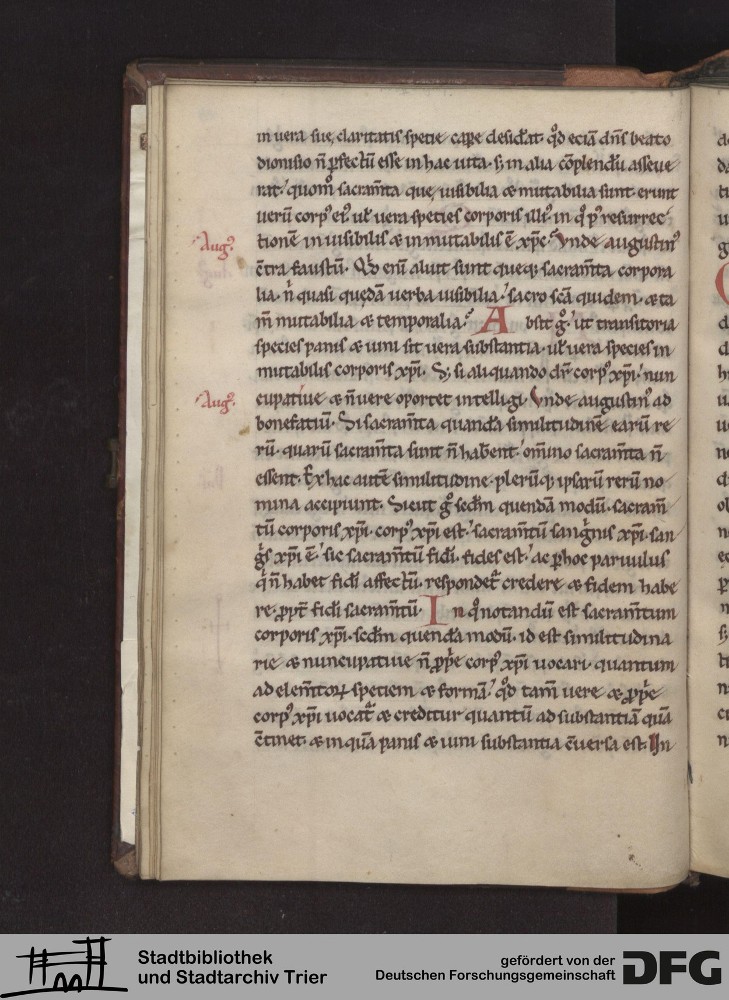 in uera sue claritatis specie capere desiderat. qđ ecia dn̄s beato
dionisio n̄ ꝑfectū esse in hac uita. sꝫ in alia cōplendū asseue
rat. quom̊ sacram̄ta que uisibilia & mutabilia sunt erunt
uerū corpꝰ eiꝰ. uł uera species corporis illiꝰ. in q̊ pꝰ resurrec
Augꝰ.
tionē inuisibilis & inmutabilis ē xp̄c. Vnde augustinꝰ
c̄tra faustū. Qđ eni aliut sunt queqꝫ sacram̄ta corpora
lia. n̄ quasi quedā uerba uisibilia. sacro sc̄a quidem. & ta
m̄ mutabilia & temporalia. Absit g̊. ut transitoria
species panis & uini sit uera substantia. uł uera species in
mutabilis corporis xp̄i. Sꝫ si aliquando dr̄ corpꝰ xp̄i. nun
Augꝰ.
cupatiue & n̄ uere oportet intelligi. Vnde augustinꝰ ad
bonefatiū. Si sacram̄ta quandā similitudinē earū re
rū. quarū sacram̄ta sunt n̄ haƀent. om̄ino sacram̄ta n̄
essent. Ex hac autē similitudine. plerūqꝫ ipsarū rerū no
mina accipiunt. Sicut g̊ scđm quendā modū. sacram̄
tū corporis xp̄i. corpꝰ xp̄i est. sacram̄tū sanguinis xp̄i. san
guis xp̄i ē. sic sacram̄tū fidi. fides est. ac ꝑ hoc paruulus
q̇ n̄ habet fidi affectū. respondet᷑ credere & fidem habe
re. ꝓpt̄ fidi sacram̄tū. In q̊ notandū est sacram̄tum
corporis xp̄i. scđm quendā modū. id est similitudina
rie & nuncupatiue n̄ ꝓp̄e corpꝰ xp̄i uocari. quantum
ad elem̄toꝝ speciem & formā. qđ tam̄ uere & ꝓp̄e
corpꝰ xp̄i uocat᷑ & creditur quantū ad substantiā quā
c̄tinet. & in quā panis & uini substantia c̄uersa est. In
Stadtbibliothek
und Stadtarchiv Trier
gefördert von der
Deutschen Forschungsgemeinschaft
DFG